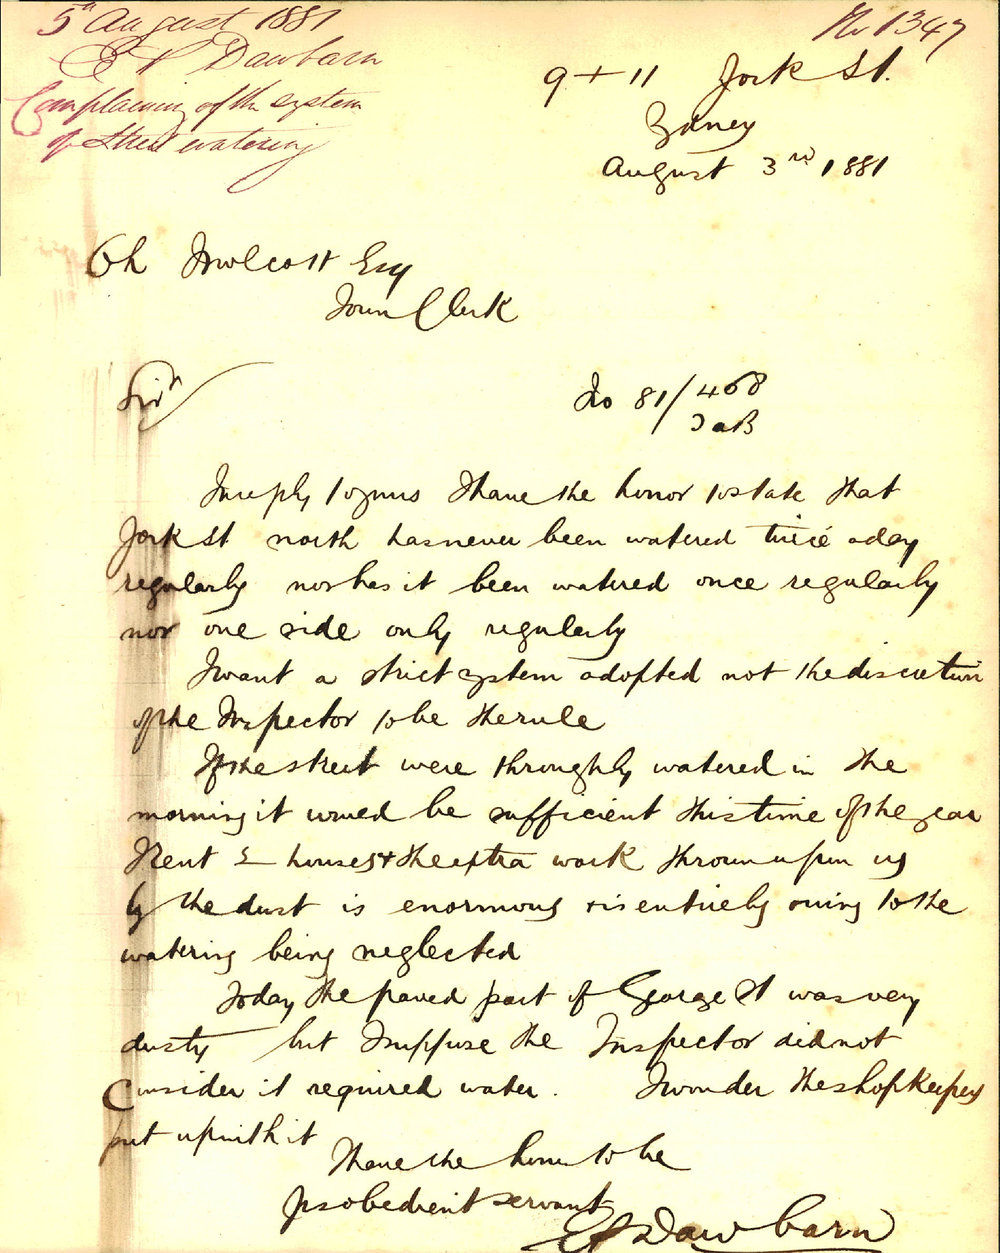 5th August 1881
E S Dawbarn
Complaining of the system
of Street watering
No 1347
9 + 11 York St.
Sydney
August 3rd 1881
Ch Woolcott Esq
Town Clerk
Sir
No 81/468
In reply to yours I have the honor to state that
York St north has never been watered twice a day
regularly nor has it been watered once regularly
nor one side only regularly
I want a strict system adopted not the discretion
of the Inspector to be the rule
If the street were throughly watered in the
morning it would be sufficient this time of the year
I rent 2 houses & the extra work thrown upon us
by the dust is enormous & is entirely owing to the
watering being neglected
Today the paved part of George St was very
dusty but I suppose the Inspector did not
consider it required water. I wonder the shopkeepers
put up with it
I have the honor to be
yrs obedient servant
E S Dawbarn